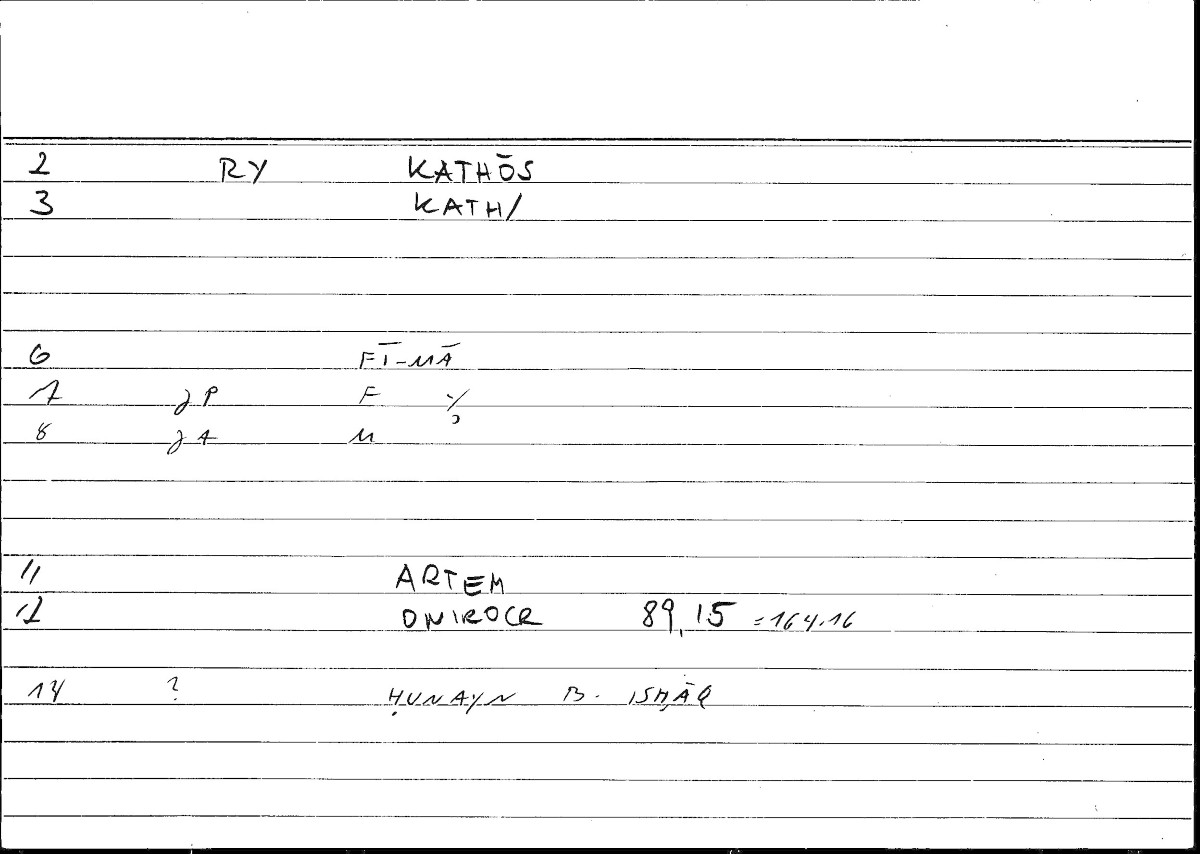 2 RY KATHŌS
3 KATH/
6 FĪ-MĀ
7 JP F ./.
8 JA M
11 ARTEM
12 ONIROCR 89,15 =164.16
14 ? ḤUNAYN B. ISḤĀQ